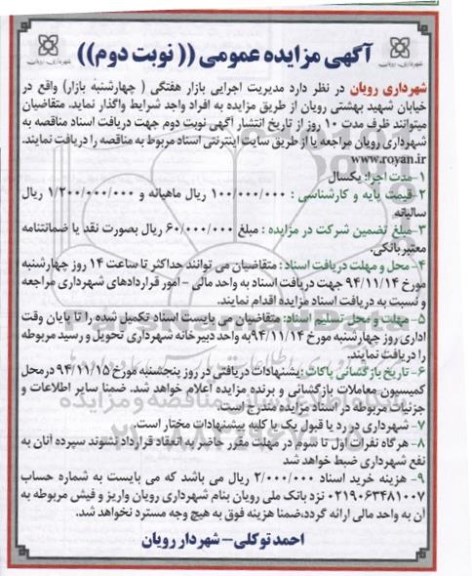 آگهی مزایده عمومی (( نوبت دوم ))
شهرداری رویان در نظر دارد مدیریت اجرایی بازار هفتگی ( چهارشنبه بازار) واقع در
خیابان شهید بهشتی رویان از طریق مزایده به افراد واجد شرایط واگذار نماید. متقاضیان
میتوانند ظرف مدت ۱۰ روز از تاریخ انتشار آگهی نوبت دوم جهت دریافت اسناد مناقصه به
شهرداری رویان مراجعه یا از طریق سایت اینترنتی اسناد مربوط به مناقصه را دریافت نمایند.
www.royan.ir
۱- مدت اجرا: یکسال
۲- قیمت پایه و کارشناسی : ۱۰۰/۰۰۰/۰۰۰ ریال ماهیانه و ۱/۲۰۰/۰۰۰/۰۰۰ ریال
سالیانه.
۳- مبلغ تضمین شرکت در مزایده : مبلغ ۶۰/۰۰۰/۰۰۰ ریال بصورت نقد یا ضمانتنامه
معتبر بانکی.
۴- محل و مهلت دریافت اسناد : متقاضیان می توانند حداکثر تا ساعت ۱۴ روز چهارشنبه
مورخ ۹۴/۱۱/۱۴ جهت دریافت اسناد به واحد مالی - امور قراردادهای شهرداری مراجعه
و نسبت به دریافت اسناد مزایده اقدام نمایند.
۵- مهلت و محل تسلیم اسناد: متقاضیان می بایست اسناد تکمیل شده را تا پایان وقت
اداری روز چهارشنبه مورخ ۹۴/۱۱/۱۴ به واحد دبیرخانه شهرداری تحویل و رسید مربوطه
را دریافت نمایند.
۶- تاریخ بازگشائی پاکات :پیشنهادات دریافتی در روز پنجشنبه مورخ ۹۴/۱۱/۱۵ درمحل
کمیسیون معاملات بازگشائی و برنده مزایده اعلام خواهد شد. ضمنا سایر اطلاعات و
جزئیات مربوطه در اسناد مزایده مندرج است.
۷- شهرداری در رد یا قبول یک یا کلیه پیشنهادات مختار است.
۸- هرگاه نفرات اول تا سوم در مهلت مقرر حاضر به انعقاد قرارداد نشوند سپرده آنان به
نفع شهرداری ضبط خواهد شد
۹- هزینه خرید اسناد ۲/۰۰۰/۰۰۰ ریال می باشد که می بایست به شماره حساب
۰۲۱۹۰۶۳۴۸۱۰۰۷ نزد بانک ملی رویان بنام شهرداری رویان واریز و فیش مربوطه به
آن به واحد مالی ارائه گردد،ضمنا هزینه فوق به هیچ وجه مسترد نخواهد شد.
احمد توکلی- شهردار رویان